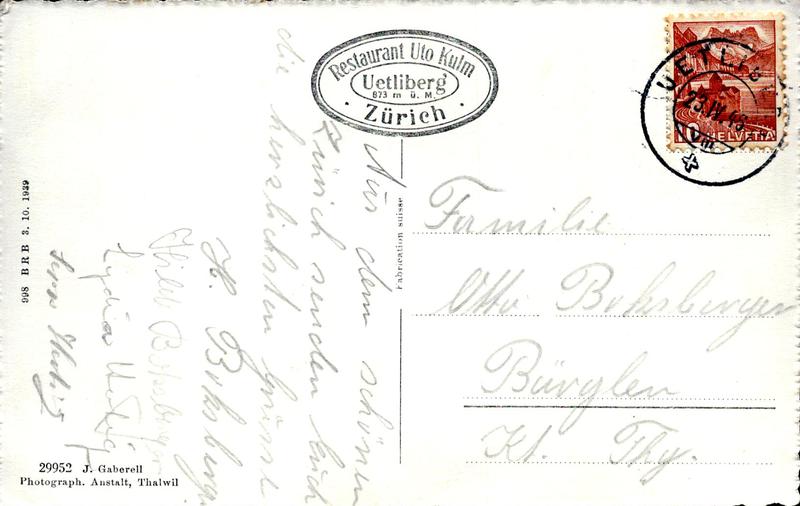 Restaurant Uto Kulm
Uetliberg
873 m ü. M.
Zürich
UETLI
23.IV.43
VIII
10 HELVETIA
Aus dem schönen
Zürich senden Euch
die herzlichsten Grüsse
H. Bohsberger
Hild Bohsberger
Lydia
Familie
Otto Bohsberger
Bürglen
Kt. Thg.
Fabrication suisse
998 BRB 3. 10. 1939
29952 J. Gaberell
Photograph. Anstalt, Thalwil